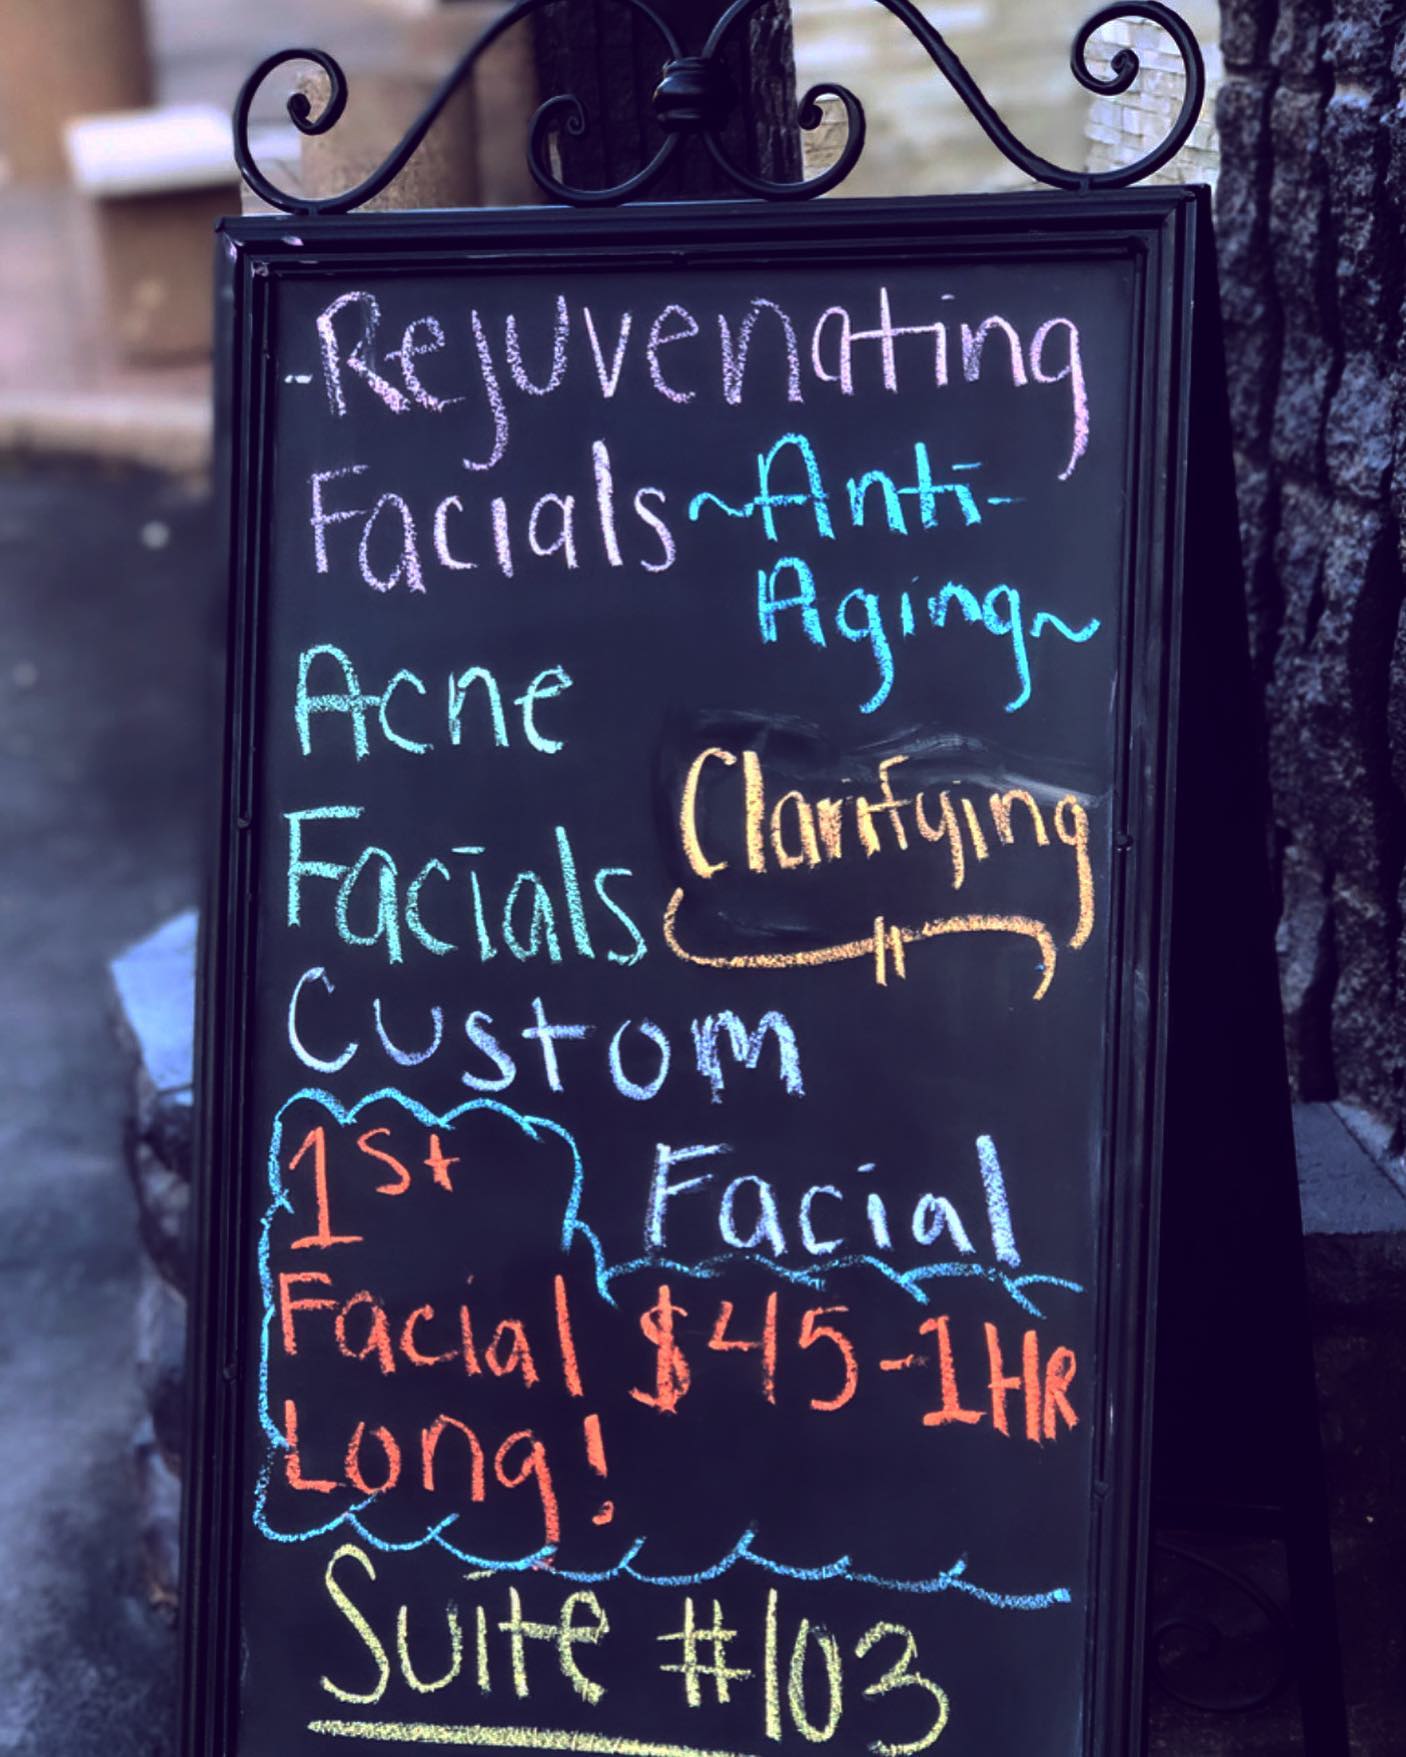 -Rejuvenating
Facials ~Anti-
Aging~
Acne
Clarifying
Facials
Custom
Facial
1st
Facial $45-1HR
Long!
Suite #103